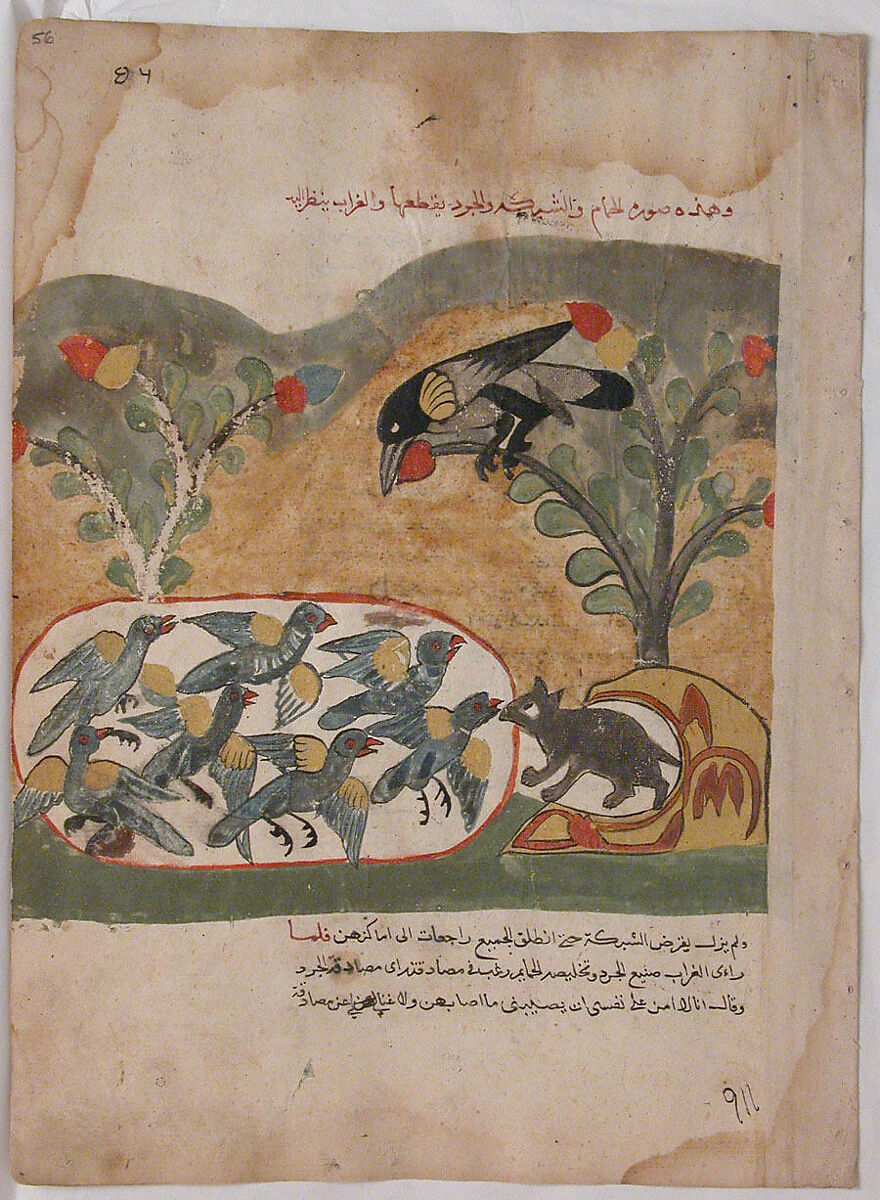 56
84
وهذه صورة الحمام والشبركه والجرد يقطعها والغراب ينظر اليه
ولم يزل يقرض الشبركة حتى انطلق الجميع راجعات الى اماكنهن فلما
راءى الغراب صنيع الجرد وتخليصه الحمايم رغب في مصادقته راى مصادقة الجرد
وقال انا لا امن على نفسى ان يصيبنى ما اصابهن ولا غنا عن مصادقة
911